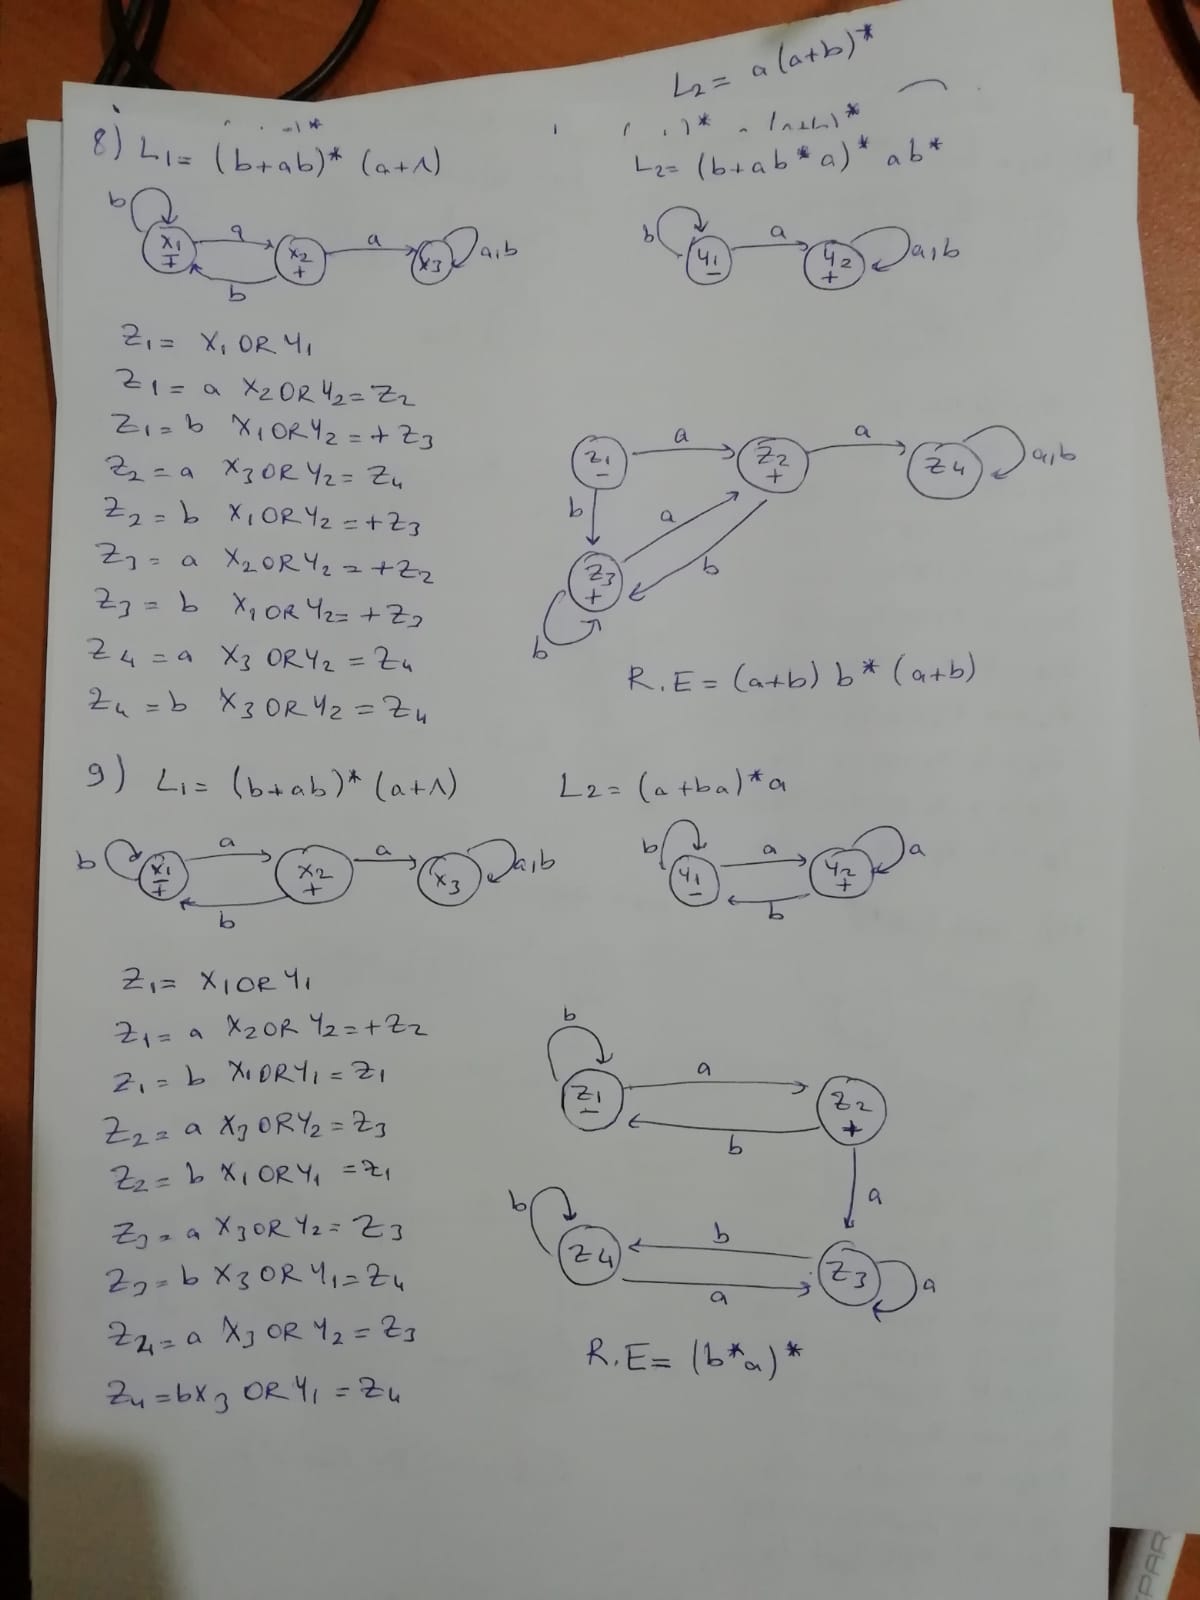 L2= a(a+b)*
8) L1= (b+ab)* (a+Λ)
L2= (b+ab*a)* ab*
b
x1 ∓
a
x2 +
a
x3
a,b
b
b
y1 -
a
y2 +
a,b
Z1= X1 OR Y1
Z1= a X2 OR Y2 = Z2
Z1= b X1 OR Y2 = + Z3
Z2 = a X3 OR Y2 = Z4
Z2 = b X1 OR Y2 = + Z3
Z3 = a X2 OR Y2 = + Z2
Z3 = b X1 OR Y2 = + Z3
Z4 = a X3 OR Y2 = Z4
Z4 = b X3 OR Y2 = Z4
Z1 -
a
Z2 +
a
Z4
a,b
b
a
b
Z3 +
b
R.E = (a+b) b* (a+b)
9) L1= (b+ab)* (a+Λ)
L2= (a+ba)*a
b
x1 ∓
a
x2 +
a
x3
a,b
b
b
y1 -
a
y2 +
a
b
Z1= X1 OR Y1
Z1= a X2 OR Y2 = + Z2
Z1 = b X1 OR Y1 = Z1
Z2 = a X3 OR Y2 = Z3
Z2 = b X1 OR Y1 = Z1
Z3 = a X3 OR Y2 = Z3
Z3 = b X3 OR Y1 = Z4
Z4 = a X3 OR Y2 = Z3
Z4 = b X3 OR Y1 = Z4
b
Z1 -
a
Z2 +
b
a
b
Z4
b
Z3
a
a
R.E= (b*a)*